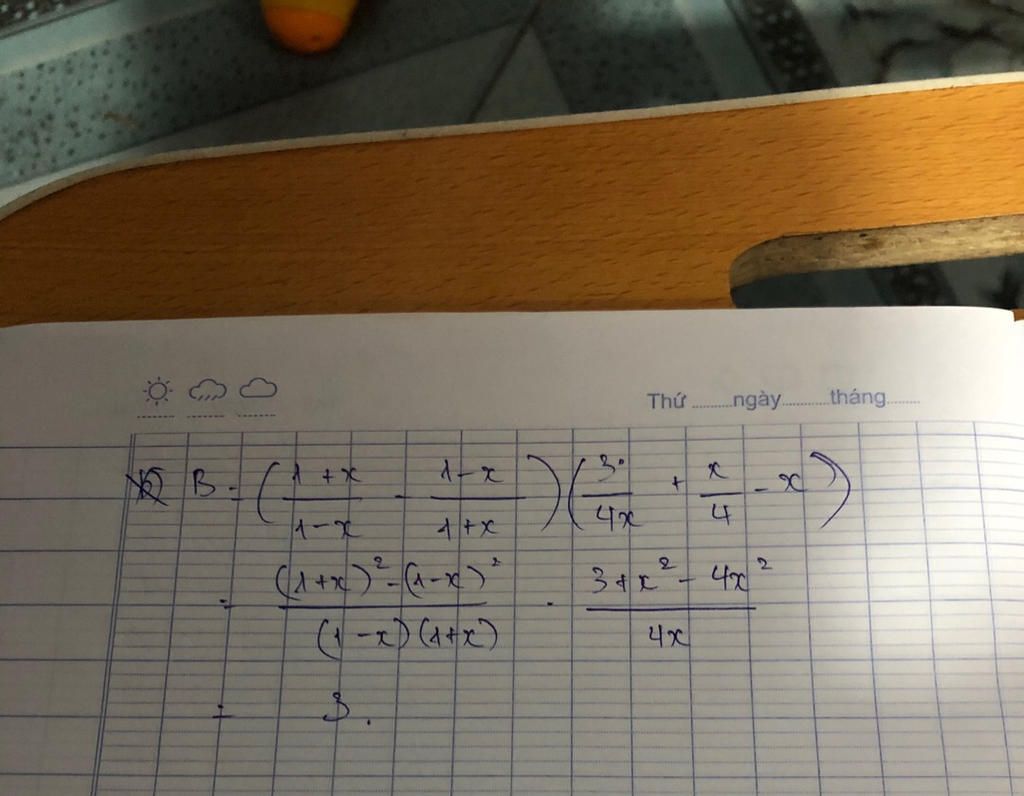 Thứ ........ngày.........tháng.......
b) B = ( (1+x)/(1-x) - (1-x)/(1+x) ) ( 3/(4x) + x/4 - x )
= ((1+x)² - (1-x)²)/((1-x)(1+x)) · (3+x² - 4x²)/(4x)
= 3.